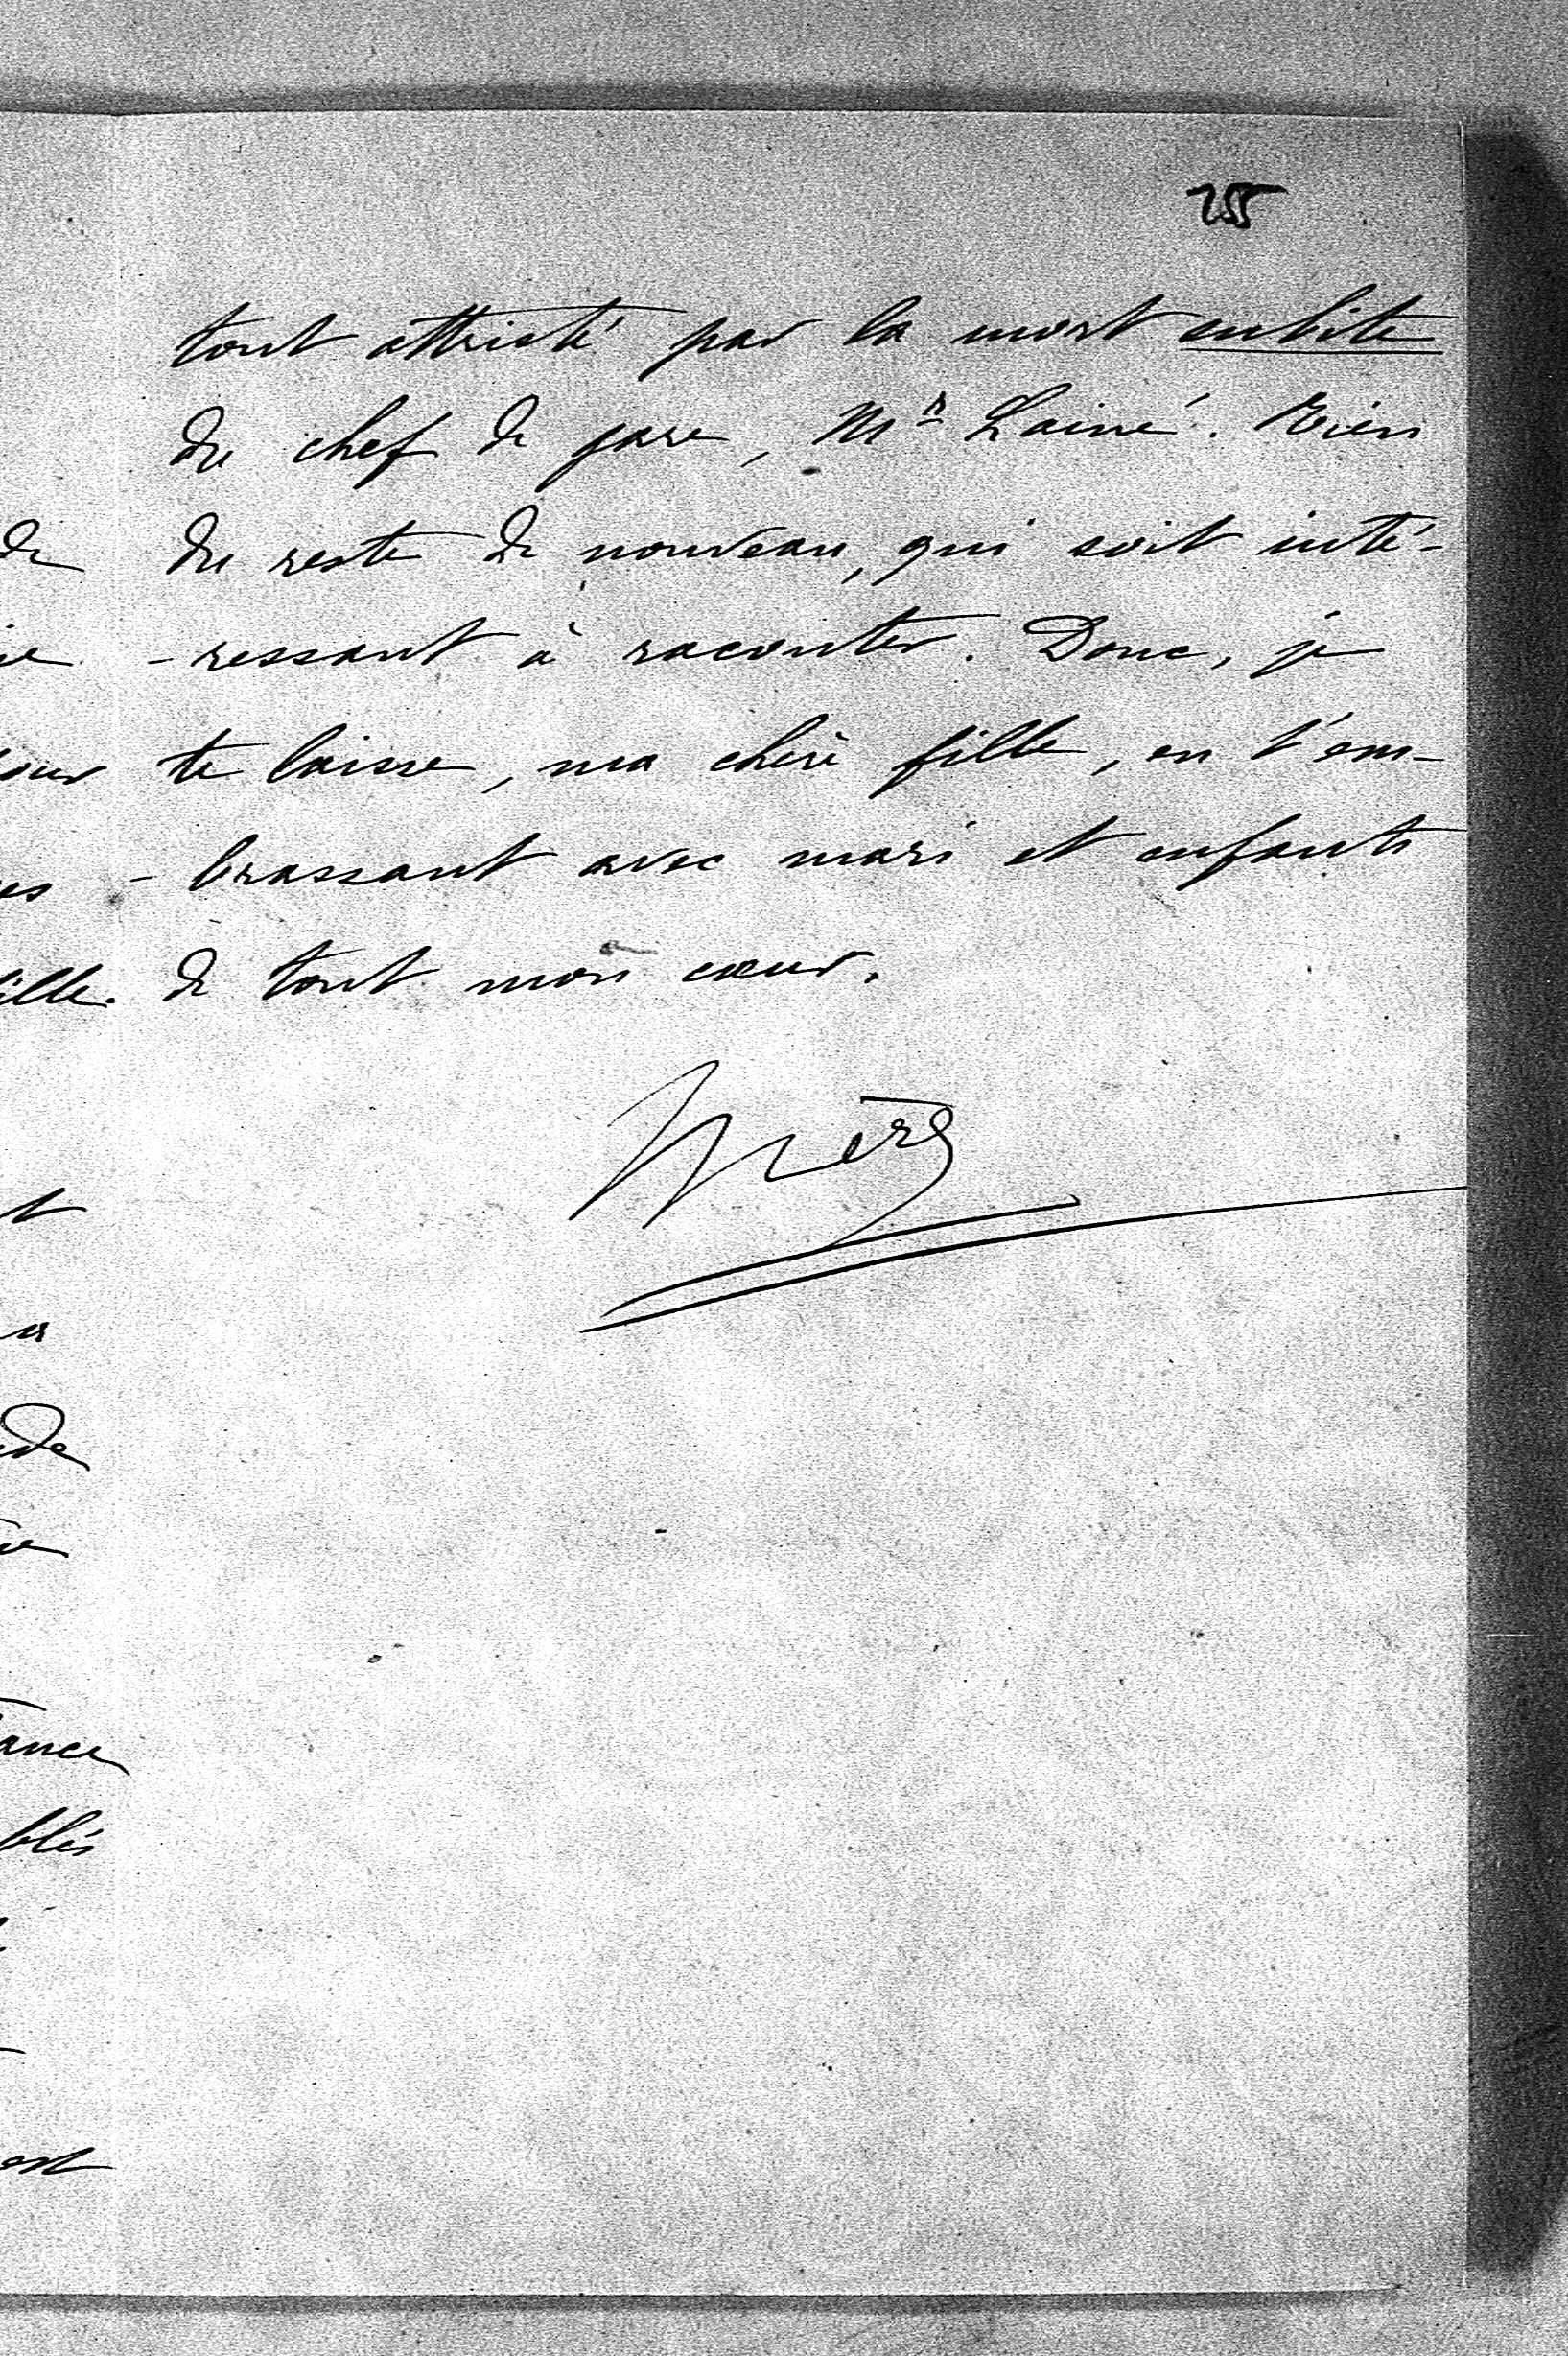 255
tout attristé par la mort subite
du chef de gare, Mr Lainé. Rien
du reste de nouveau, qui soit inté-
-ressant à raconter. Donc, je
te laisse, ma chère fille, en t'em-
-brassant avec mari et enfants
de tout mon cœur.
Mère
de
our
es
ille.
ance
blés
est